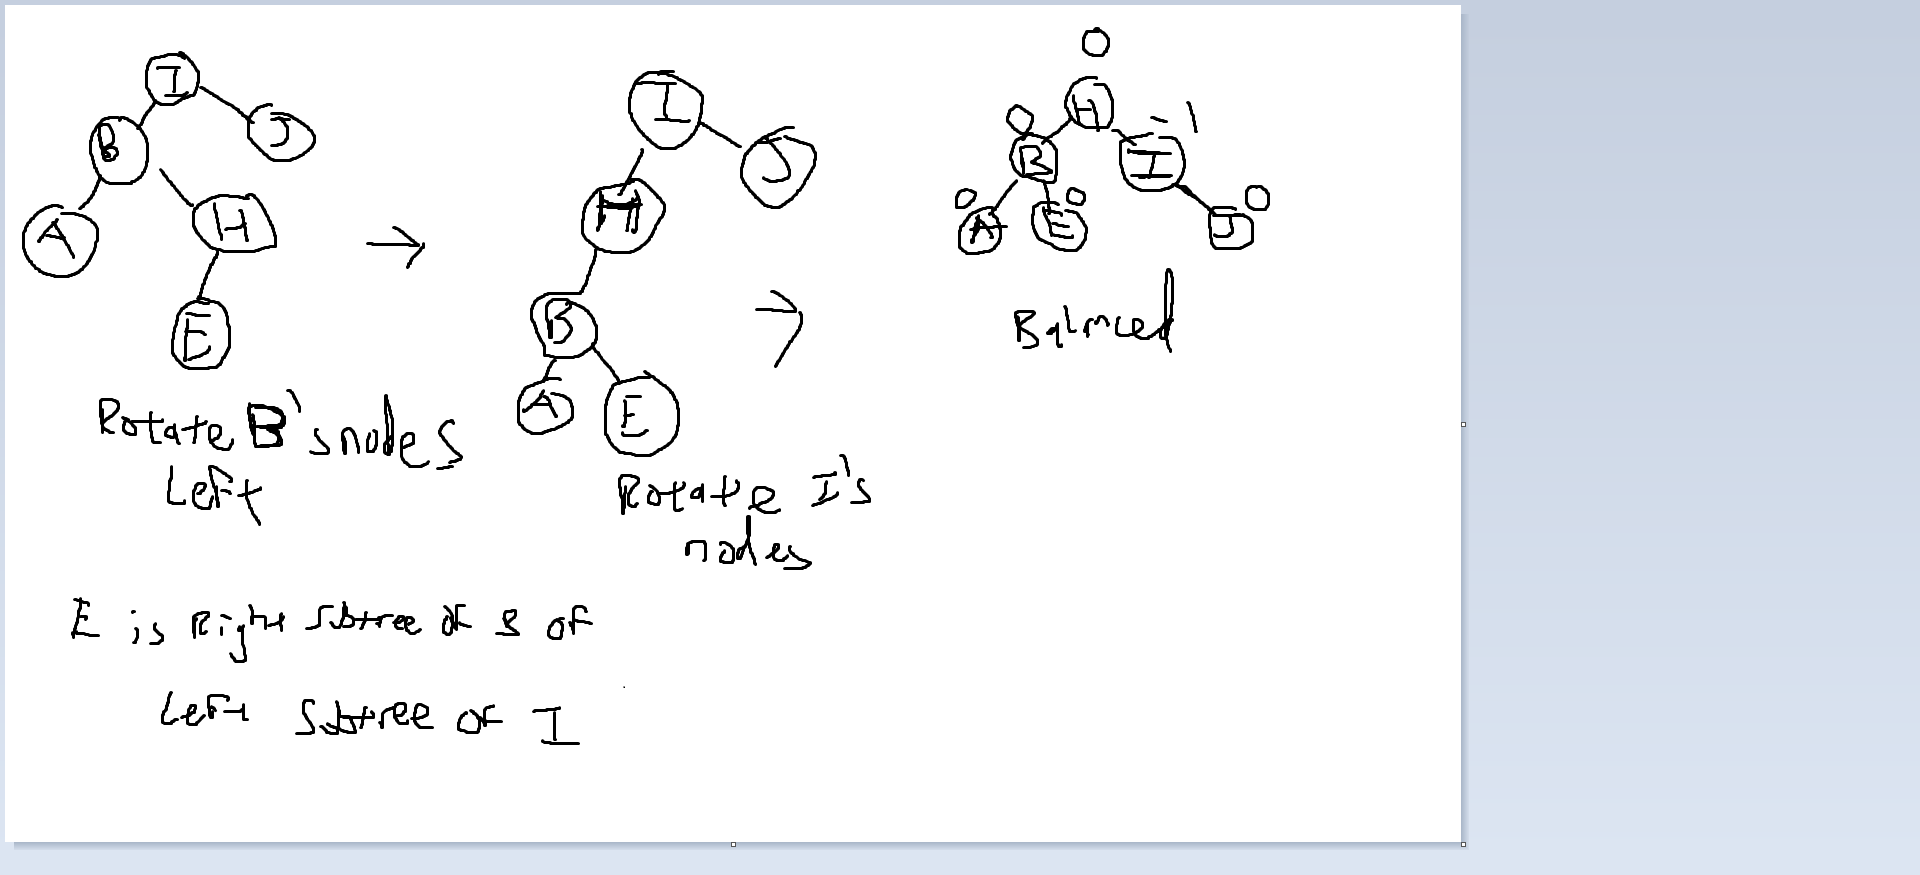 I
B
J
A
H
E
Rotate B's nodes
Left
I
J
H
B
A
E
Rotate I's
nodes
0
H
0
-1
B
I
0
0
0
A
E
J
Balanced
E is Right Subtree of B of
Left Subtree of I